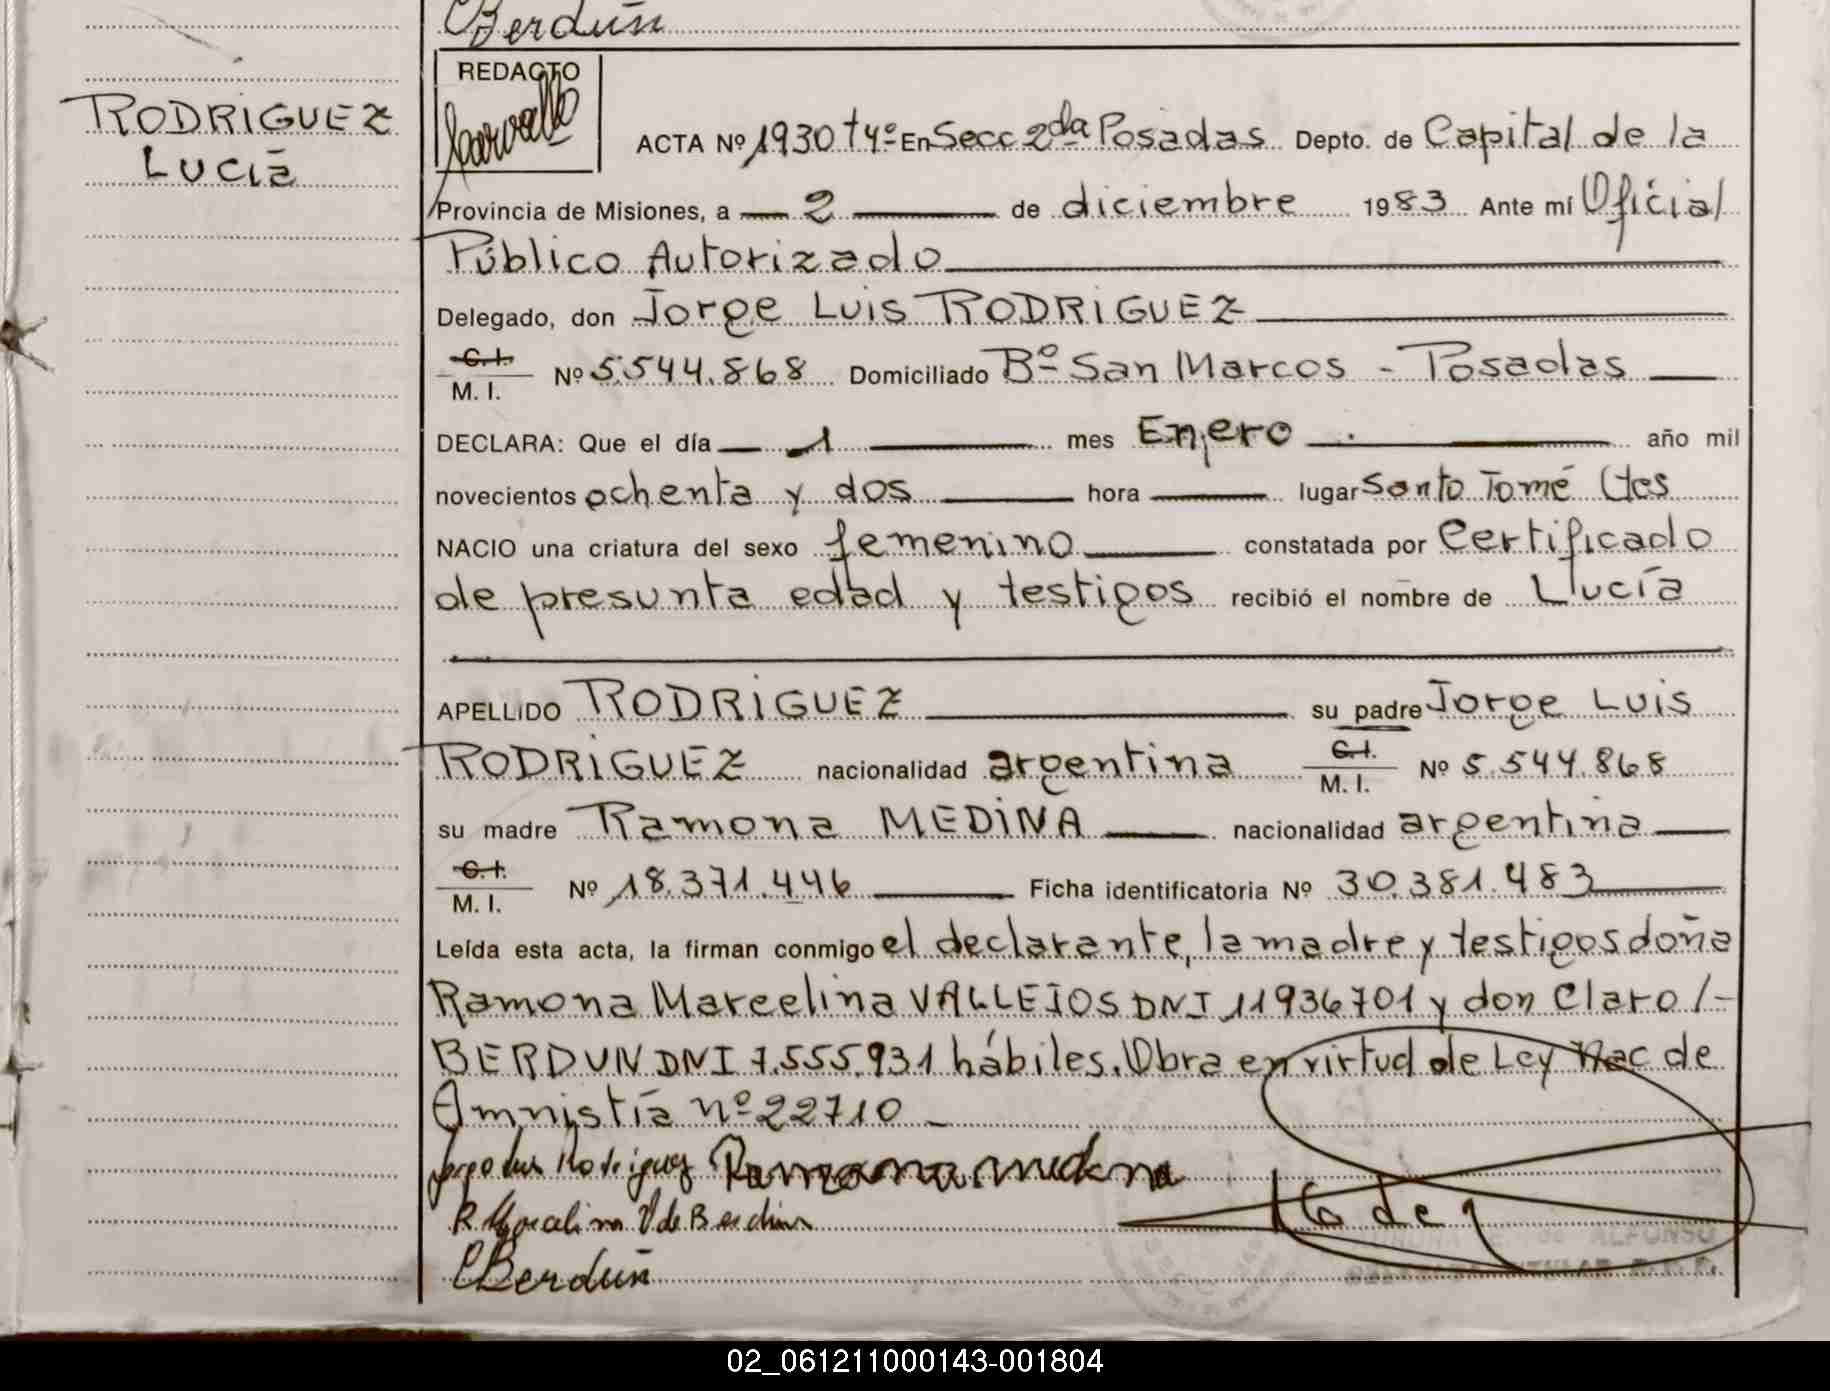 Berdún
REDACTO
Carvallo
RODRIGUEZ
LUCÍA
ACTA Nº 1930 tyº En Secc 2da Posadas Depto. de Capital de la
Provincia de Misiones, a 2 de diciembre 1983 Ante mí Oficial
Público Autorizado
Delegado, don Jorge Luis RODRIGUEZ
C. I.
M. I. Nº 5.544.868 Domiciliado Bº San Marcos - Posadas
DECLARA: Que el día 1 mes Enero año mil
novecientos ochenta y dos hora lugar Santo Tomé Ctes
NACIO una criatura del sexo femenino constatada por Certificado
de presunta edad y testigos recibió el nombre de Lucía
APELLIDO RODRIGUEZ su padre Jorge Luis
RODRIGUEZ nacionalidad argentina C. I. M. I. Nº 5.544.868
su madre Ramona MEDINA nacionalidad argentina
C. I.
M. I. Nº 18.371.446 Ficha identificatoria Nº 30.381.483
Leída esta acta, la firman conmigo el declarante, la madre y testigos doña
Ramona Marcelina VALLEJOS DNI 11936701 y don Claro /-
BERDUN DNI 7.555.931 hábiles. Obra en virtud de Ley Nac de
Amnistía nº 22710 -
Jorge Luis Rodriguez Ramona medina
R Marcelina V de Berdún
CBerdún
DE ALFONSO
02_061211000143-001804